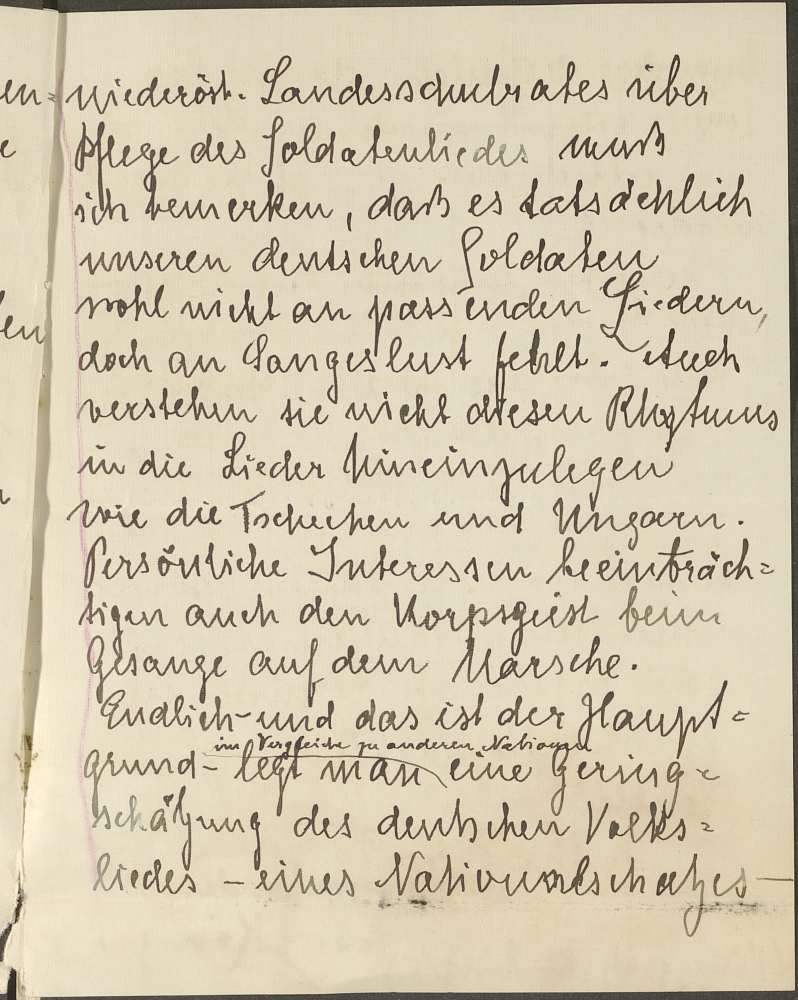 niederöst. Landesschulrates über
Pflege des Soldatenliedes muß
ich bemerken, daß es tatsächlich
unseren deutschen Soldaten
wohl nicht an passenden Liedern,
doch an Sangeslust fehlt. Auch
verstehen sie nicht diesen Rhytmus
in die Lieder hineinzulegen
wie die Tschechen und Ungarn.
Persönliche Interessen beeinträch=
tigen auch den Korpsgeist beim
Gesange auf dem Marsche.
Endlich - und das ist der Haupt=
im Vergleiche zu anderen Nationen
grund - legt man eine Gering=
schätzung des deutschen Volks=
liedes - eines Nationalschatzes -